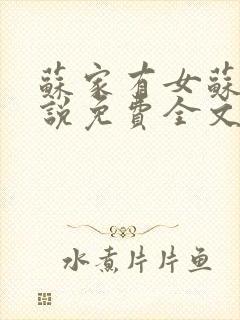 蘇家有女蘇
說免費全文
水煮片片鱼